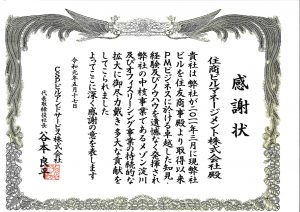 感謝状
住商ビルマネージメント株式会社殿
貴社は弊社が二〇一一年三月に現弊社
ビルを住友商事殿より取得以来
PMビジネスに於ける卓越した知見
経験及びノウハウを遺憾なく発揮され
弊社の中核事業であるメゾン淀川
及びオフィスリーシング事業の持続的な
拡大に御尽力戴き多大な貢献を
してこられました
よってここに深く感謝の意を表します
令和元年五月十七日
CSPビルアンドサービス株式会社
代表取締役社長 谷本良平